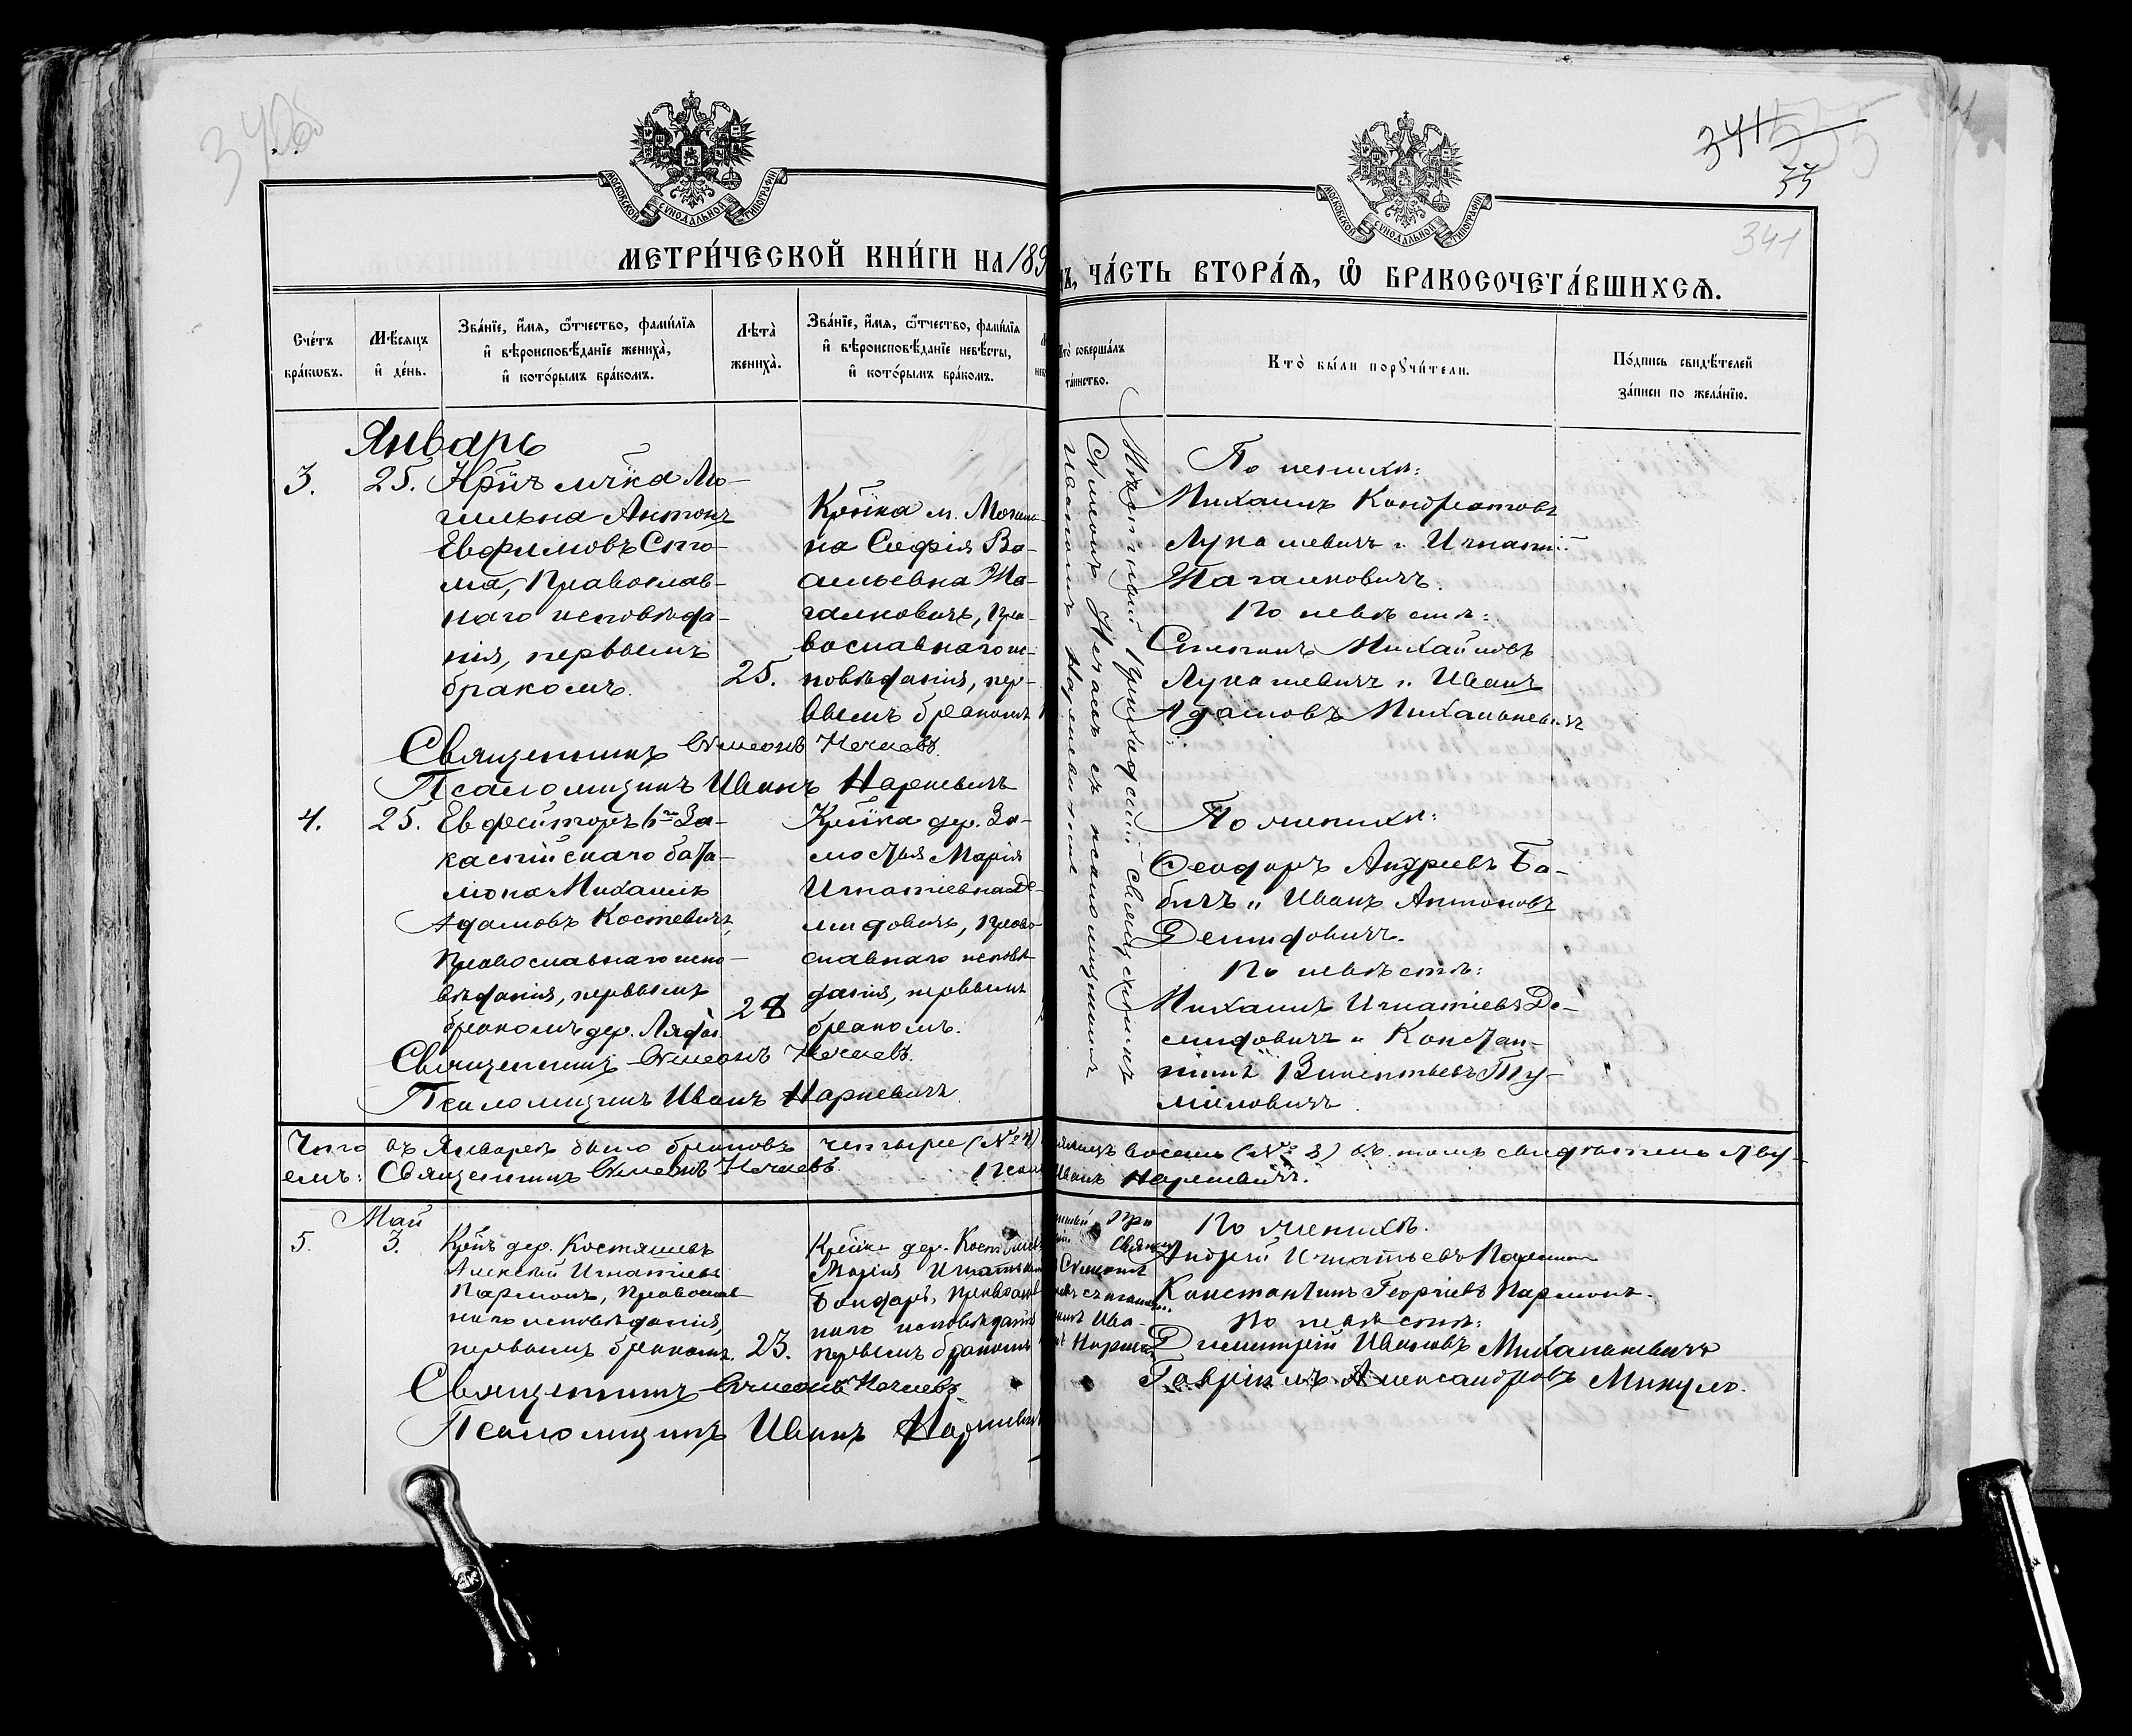 341
55
341
МОСКОВСКОЙ СѴНОДАЛЬНОЙ ТИПОГРАФІИ
МОСКОВСКОЙ СѴНОДАЛЬНОЙ ТИПОГРАФІИ
МЕТРИ́ЧЕСКОЙ КНИ́ГИ НА 189
ЧА́СТЬ ВТОРА́Ѧ, Ѽ БРАКОСОЧЕТА́ВШИХСѦ.
Сче́тъ
бра́кѡвъ.
Мѣ́сѧцъ
и҆ де́нь.
Зва́нїе, и҆́мѧ, ѻ҆́тчество, фами́лїѧ
и҆ вѣроисповѣ́данїе жениха̀,
и҆ кото́рымъ бра́комъ.
Лѣ́та̀
жениха̀.
Зва́нїе, и҆́мѧ, ѻ҆́тчество, фами́лїѧ
и҆ вѣроисповѣ́данїе невѣ́сты,
и҆ кото́рымъ бра́комъ.
Кто̀ соверша́лъ
та́инство.
Кто̀ бы́ли порꙋчи́тели.
По́дпись свидѣ́телей
за́писи по жела́нїю.
Январь
3.
25.
Крⷭ҇нъ мч҃ка Мо-
гильна Антонъ
Евфимовъ Сто-
ма, Православ-
наго исповѣда-
нія, первымъ
бракомъ.
25.
Кр҃нка м. Могиль-
на Софія Ва-
сильевна Жа-
галковичъ, Пра-
вославнаго ис-
повѣданія, пер-
вымъ бракомъ
Мѣстный приходскій священникъ
Симеонъ Нечаевъ съ псаломщикомъ
Иваномъ Наркевичемъ
По женихѣ:
Михаилъ Кондратовъ
Лукашевичъ и Игнатій
Жагалковичъ.
По невѣстѣ:
Степанъ Михайловъ
Лукашевичъ и Иванъ
Адамовъ Михалкевичъ
Священникъ Симеонъ Нечаевъ.
Псаломщикъ Иванъ Наркевичъ
4.
25.
Ефрейторъ 6го За-
каспійскаго бата-
ліона Михаилъ
Адамовъ Костевичъ,
Православнаго испо-
вѣданія, первымъ
бракомъ дер. Ляды.
28
Кр҃нка дер. За-
мостья Марія
Игнатіевна Де-
мидовичъ, Право-
славнаго исповѣ-
данія, первымъ
бракомъ.
По женихѣ:
Ѳеодоръ Андреевъ Ба-
бичъ и Иванъ Антоновъ
Демидовичъ.
По невѣстѣ:
Михаилъ Игнатіевъ Де-
мидовичъ и Констан-
тинъ Викентьевъ Ту-
миловичъ.
Священникъ Симеонъ Нечаевъ.
Псаломщикъ Иванъ Наркевичъ.
Итого въ Январѣ было браковъ четыре (№ 4)
восемь (№ 8) въ томъ свидѣтель
емъ: Священникъ Симеонъ Нечаевъ.
Иванъ Наркевичъ.
Май
5.
3.
Кр҃нъ дер. Костяшевъ
Алексѣй Игнатіевъ
Пармонъ, Православ-
наго исповѣданія,
первымъ бракомъ.
23.
Кр҃нка дер. Костяшевъ
Марія Игнатьевна
Бондарь, Православ
наго исповѣданія
первымъ бракомъ
По женихѣ.
Андрей Игнатьевъ Пармонъ
Константинъ Георгіевъ Пармонъ.
По невѣстѣ:
Димитрій Ивановъ Михалкевичъ
Гавріилъ Александровъ Микуло.
Священникъ Симеонъ Нечаевъ.
Псаломщикъ Иванъ Наркевичъ